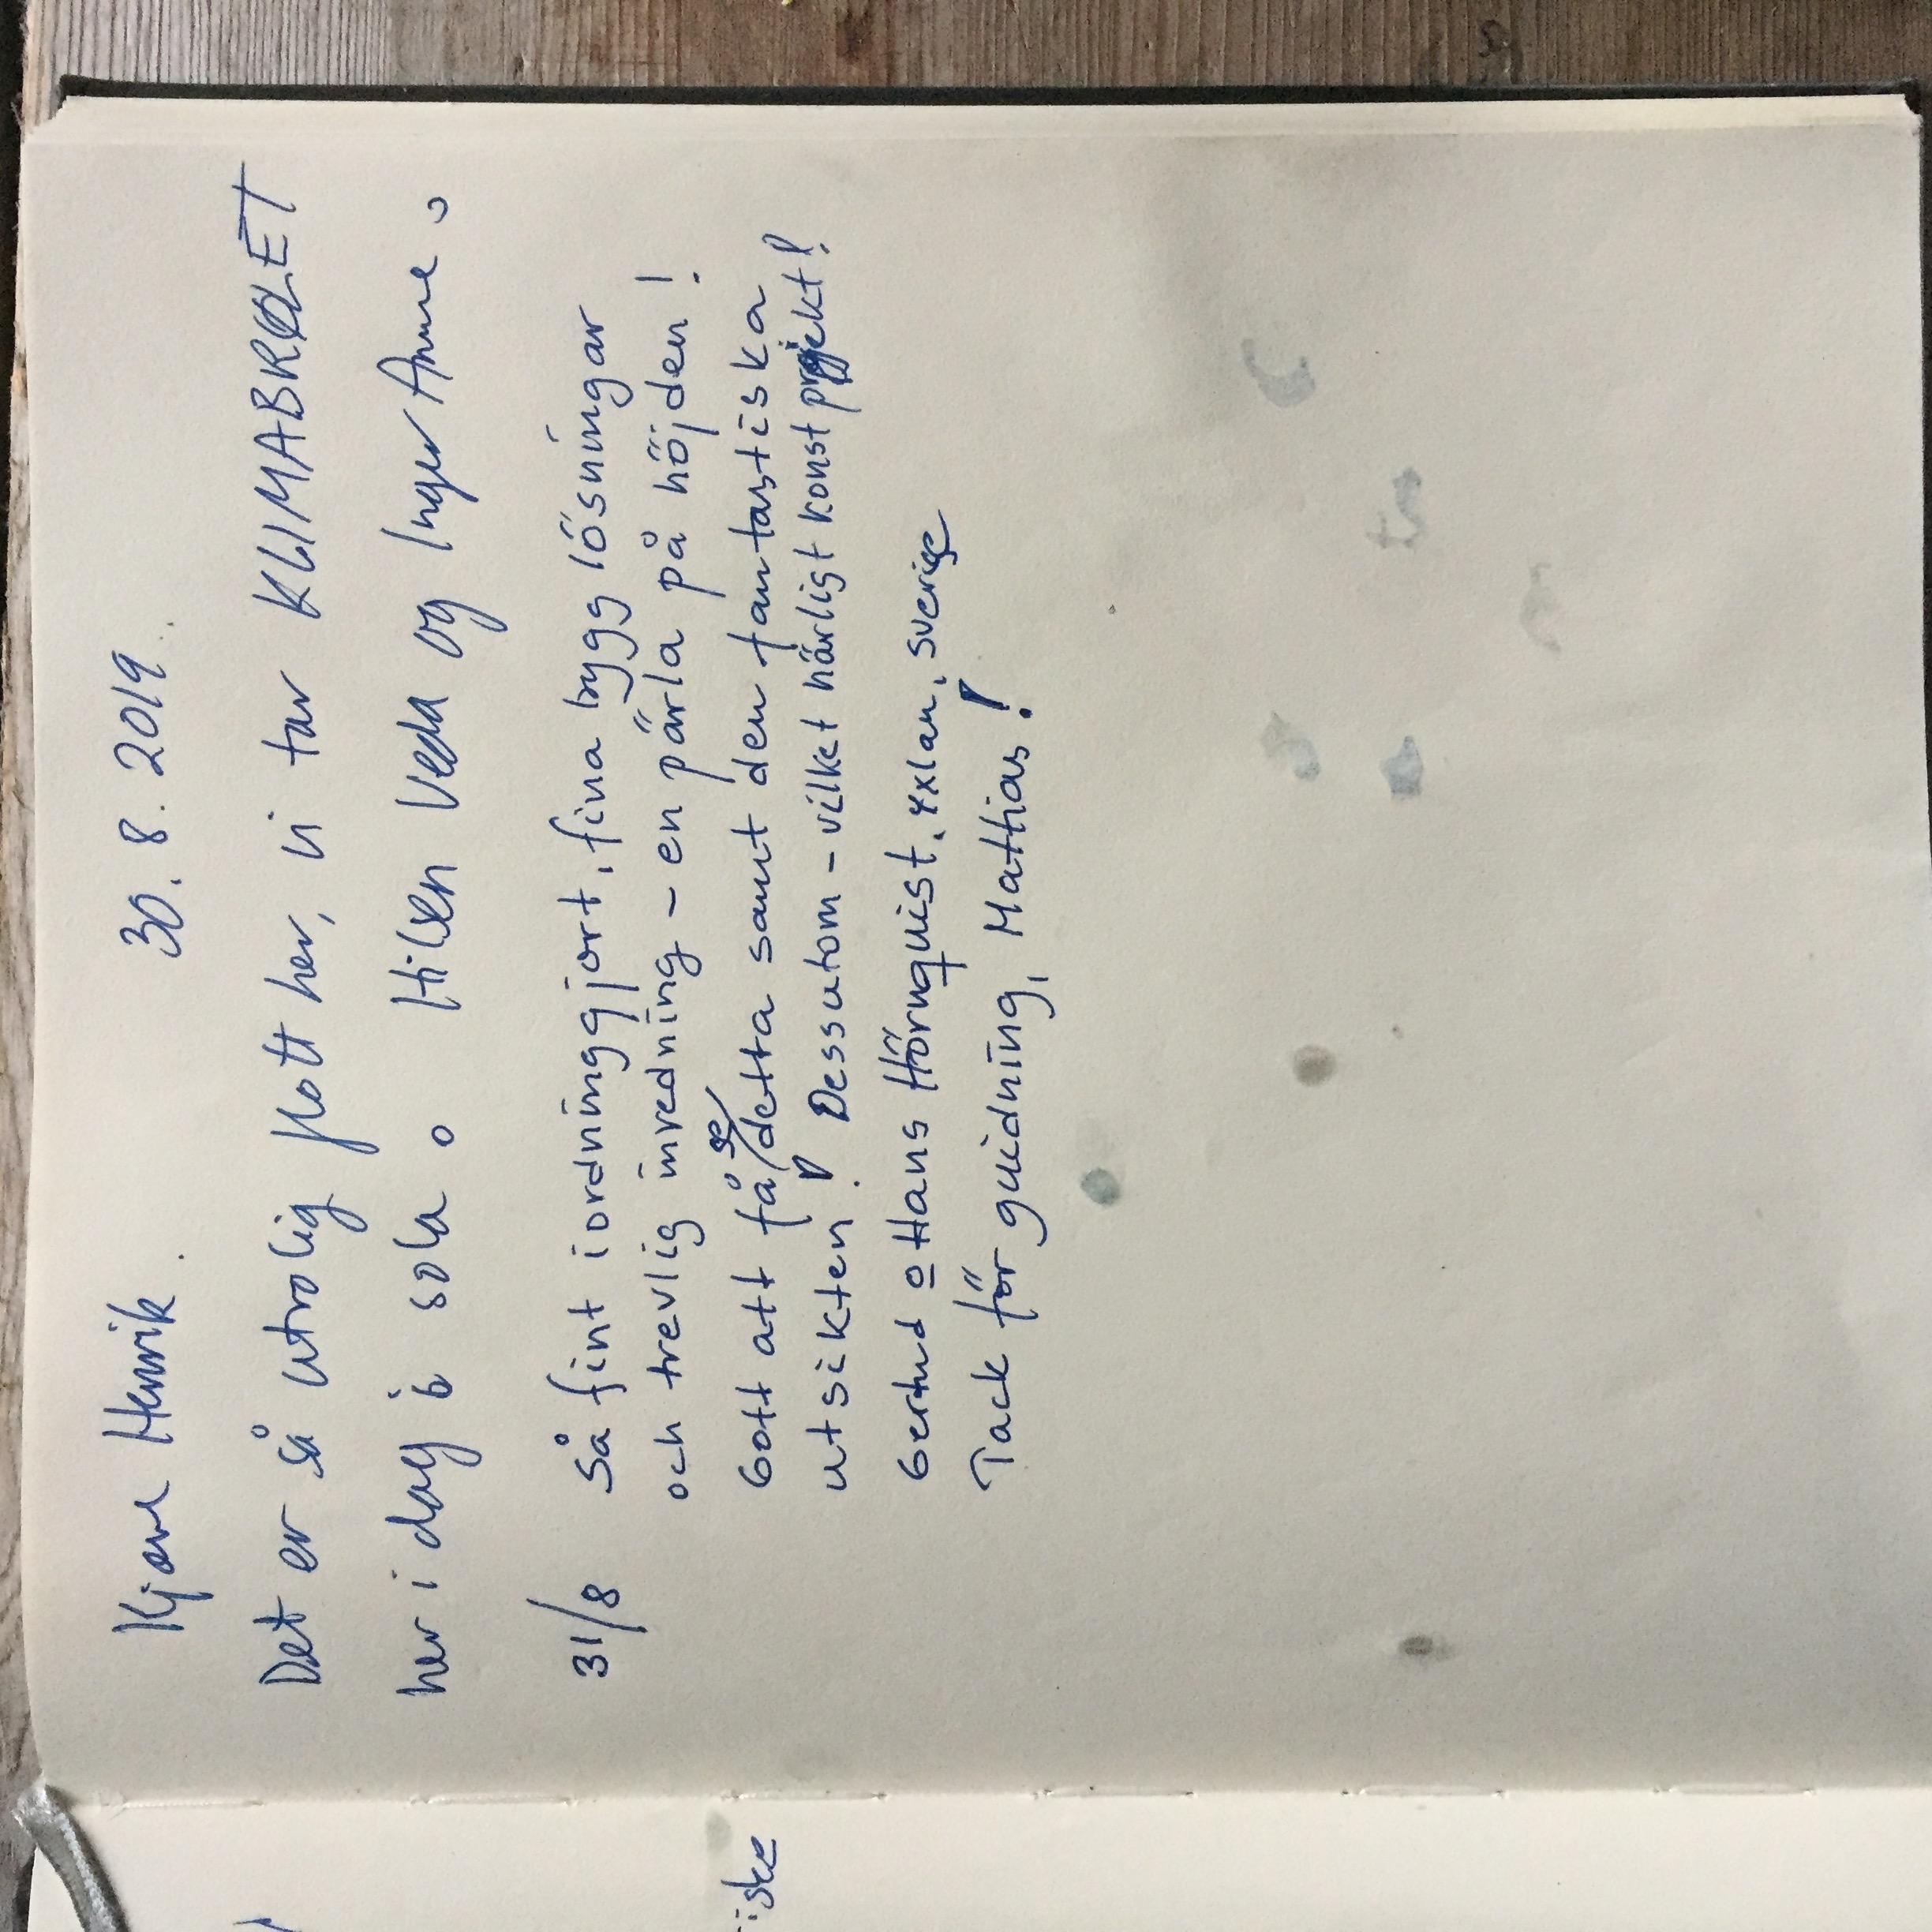 Kjære Henrik. 30.8.2019.
Det er så utrolig flott her, vi tar KLIMABRØLET
her i dag i sola. Hilsen Veda og Inger Anne.
31/8 Så fint iordninggjort, fina bygg lösningar
och trevlig inredning – en pärla på höjden!
Gott att få se detta samt den fantastiska
utsikten! Dessutom – vilket härligt konst projekt!
Gertrud o Hans Hörnquist, Yxlan, Sverige
Tack för guidning, Mattias!